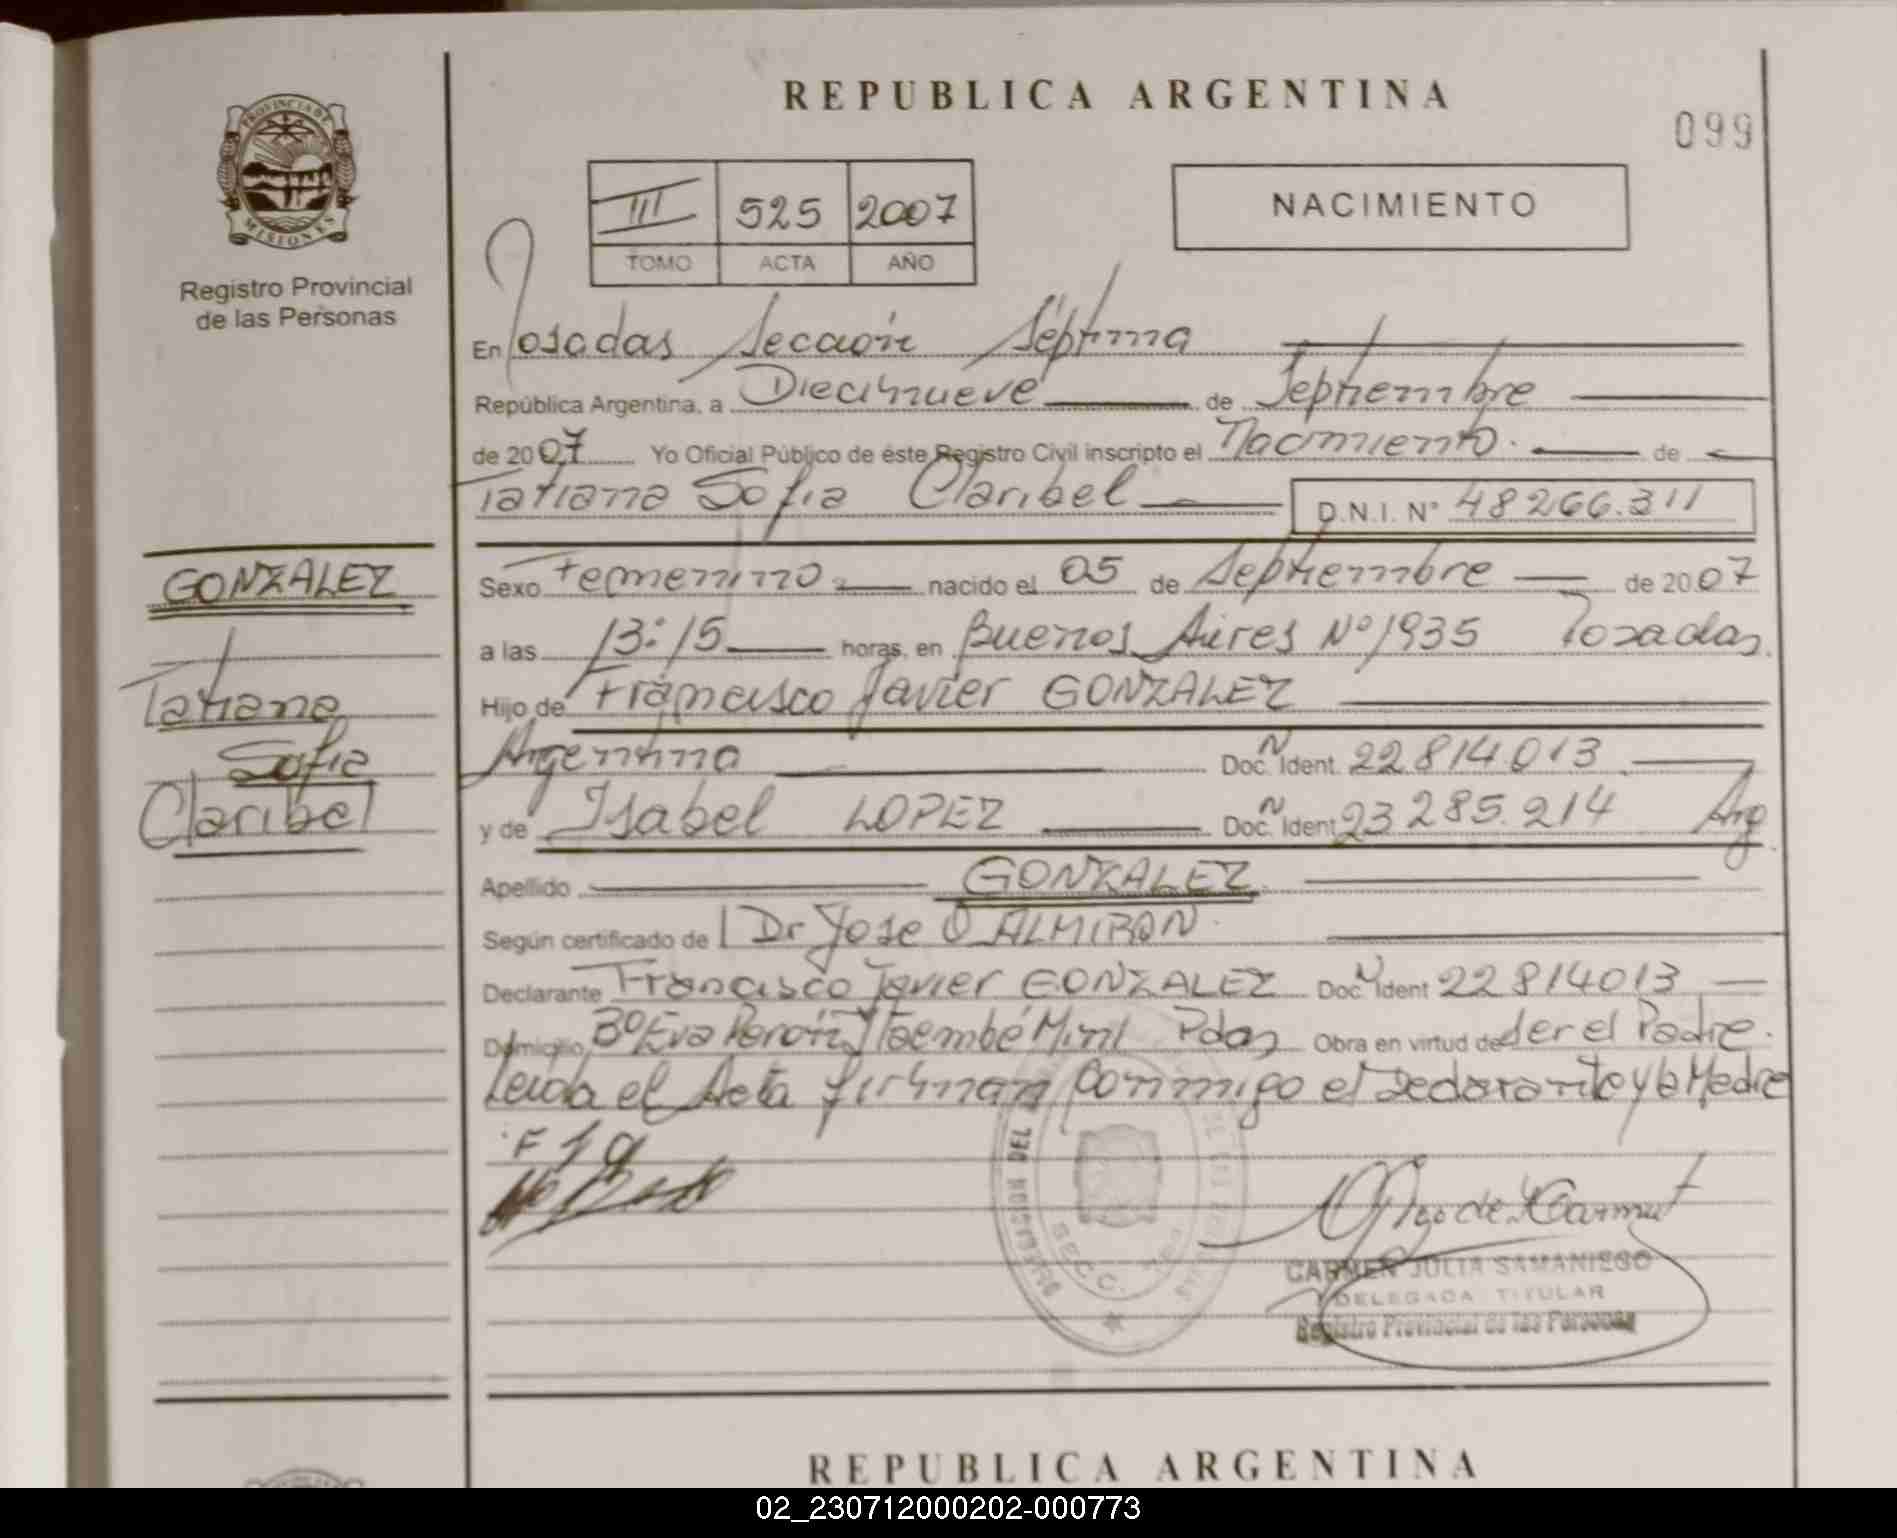 PROVINCIA DE
MISIONES
Registro Provincial
de las Personas
GONZALEZ
Tatiana
Sofia
Claribel
REPUBLICA ARGENTINA
099
III 525 2007
TOMO ACTA AÑO
NACIMIENTO
En Posadas Sección Séptima
República Argentina, a Diecinueve de Septiembre
de 2007 Yo Oficial Público de éste Registro Civil inscripto el Nacimiento. de
Tatiana Sofia Claribel D.N.I. N° 48266.311
Sexo Femenino nacido el 05 de Septiembre de 2007
a las 13:15 horas, en Buenos Aires N° 1935 Posadas
Hijo de Francisco Javier GONZALEZ
Argentino Doc. Ident. 22.814.013
y de Isabel LOPEZ Doc. Ident 23 285.214 Arg
Apellido GONZALEZ
Según certificado de Dr Jose O ALMIRON
Declarante Francisco Javier GONZALEZ Doc. Ident 22814013
Domicilio B° Eva Perón Itaembé Miní Pdas Obra en virtud de ser el Padre.
Leida el Acta firman Conmigo el Declarante y la Madre
F 1 g
SECC.
CARMEN JULIA SAMANIEGO
DELEGADA TITULAR
Registro Provincial de las Personas
REPUBLICA ARGENTINA
02_230712000202-000773